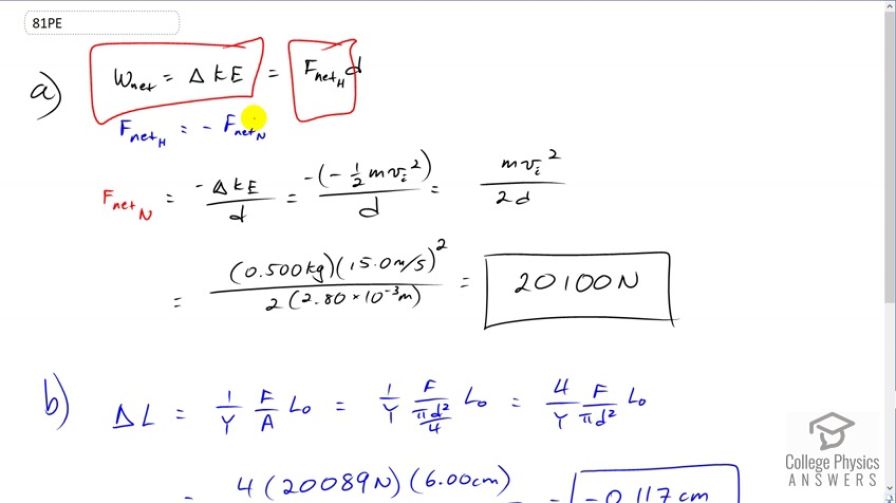 81PE
a) W_net = Δ KE = F_net_H d
F_net_H = - F_net_N
F_net_N = -ΔKE/d = -(-1/2 m v_i^2)/d = m v_i^2/2d
= (0.500kg)(15.0m/s)^2/2(2.80×10^-3m) = 20100N
b) ΔL = 1/Y F/A L_0 = 1/Y F/(πd^2/4) L_0 = 4/Y F/πd^2 L_0
= 4(20089N)(6.00cm) = -0.117cm
College Physics
ANSWERS